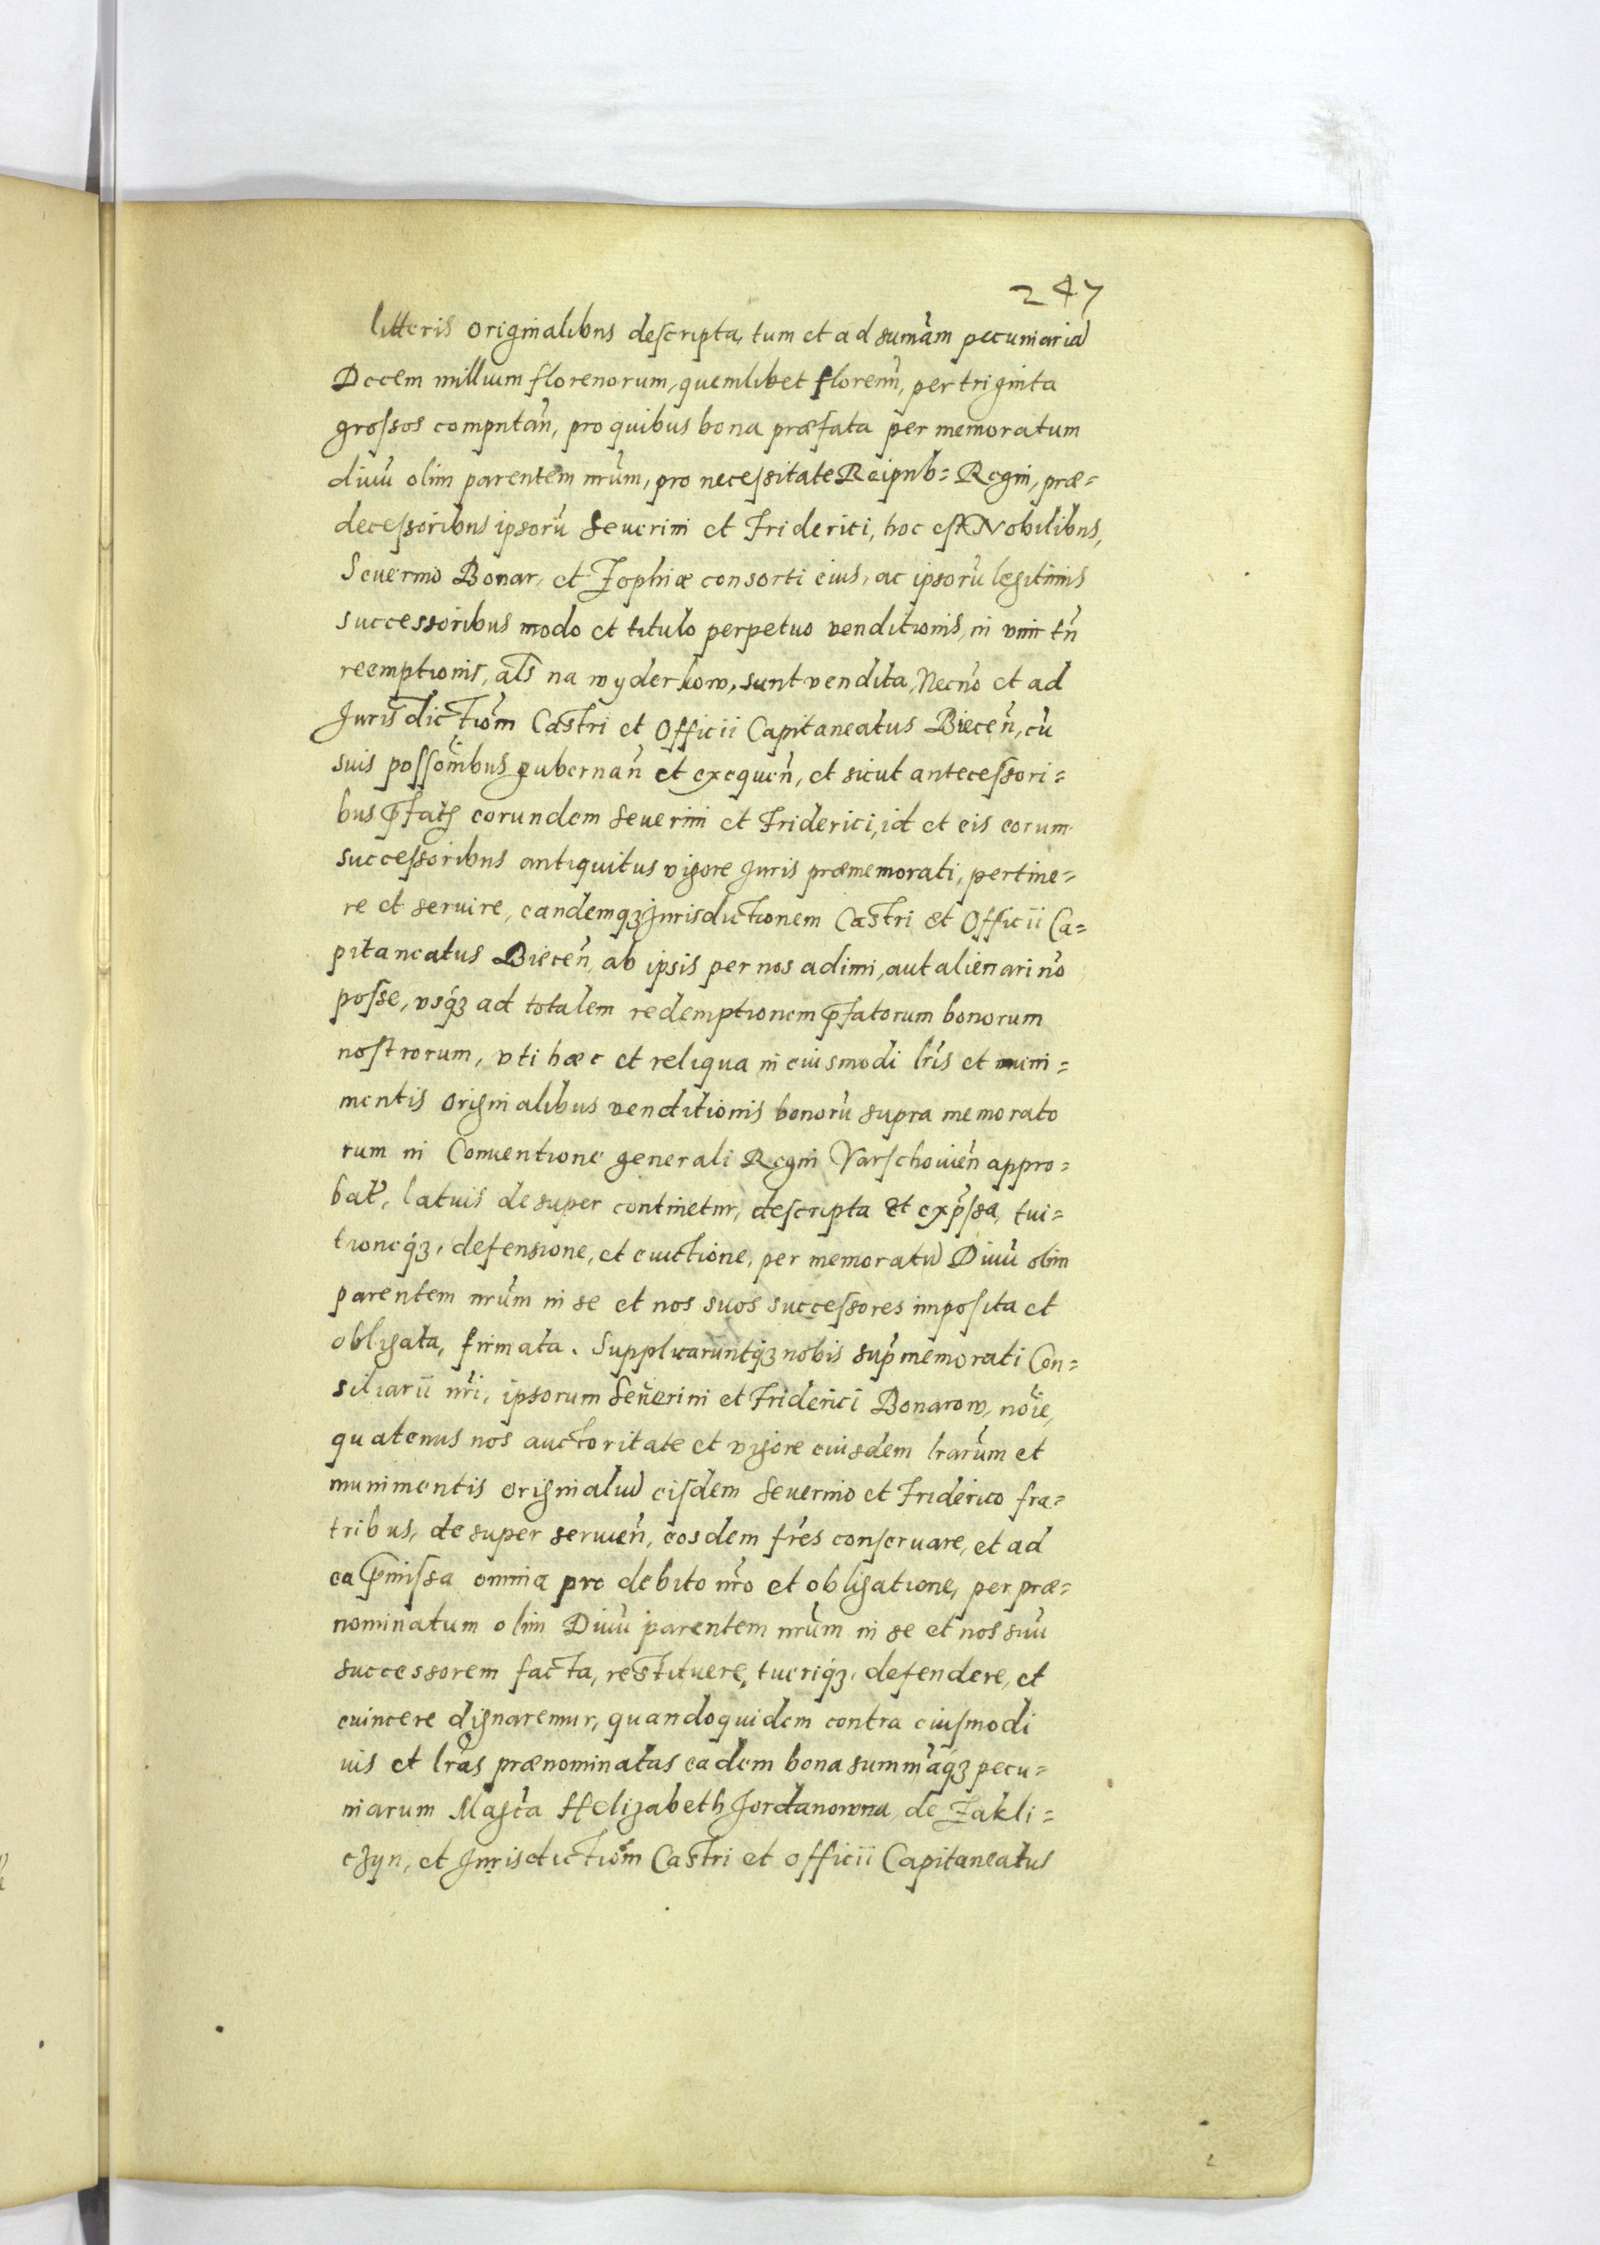 247
litteris originalibus descripta, tum et ad sumãm pecuniariã
Decem millium florenorum, quemlibet florenũ, per triginta
grossos computañ, pro quibus bona præfata per memoratum
divũ olim parentem nrũm, pro necessitate Reipub= Regni, præ=
decessoribus ipsorũ Severini et Friderici, hoc est Nobilibus,
Severino Bonar, et Zophiæ consorti eius, ac ipsorũ legitimis
successoribus modo et titulo perpetuo venditionis, in vim tñ
reemptionis, als na wyderkow, sunt vendita, Necnõ et ad
Jurisdictiõm Castri et Officii Capitaneatus Biecen̄, cũ
suis possõnibus gubernañ et exequeñ, et sicut antecessori=
bus p̄fatis eorundem Severini et Friderici, id et eis eorum
successoribus antiquitus vigore Juris præmemorati, pertine=
re et servire, eandemqꝫ Jurisdictionem Castri et Officii Ca=
pitaneatus Biecen̄, ab ipsis per nos adimi, aut alienari nõ
posse, vsqꝫ ad totalem redemptionem p̄fatorum bonorum
nostrorum, vti hæc et reliqua in eiusmodi lris et muni=
mentis originalibus venditionis bonorũ supra memorato
rum in Conventione generali Regni Varschovien̄ appro=
bat̃, latius desuper continetur, descripta et exp̃ssa, tui=
tioneqꝫ, defensione, et evictione, per memoratũ Divũ olim
parentem nrũm in se et nos suos successores imposita et
obligata, firmata. Supplicaruntqꝫ nobis sup̃memorati Con=
siliarii nri, ipsorum Severini et Friderici Bonarow, nõie,
quatenus nos auctoritate et vigore eiusdem lrarũm et
munimentis originaliũ eisdem Severino et Friderico fra=
tribus, desuper servien̄, eosdem fres conservare, et ad
ea p̄missa omnia pro debito nro et obligatione, per præ=
nominatum olim Divũ parentem nrũm in se et nos suũ
successorem facta, restituere, tueriqꝫ, defendere, et
evincere dignaremur, quandoquidem contra eiusmodi
ius et lras prænominatas eadem bona summãqꝫ pecu=
niarum Magca Helizabeth Jordanowna, de Zakli=
czyn, et Jurisdictiõm Castri et officii Capitaneatus